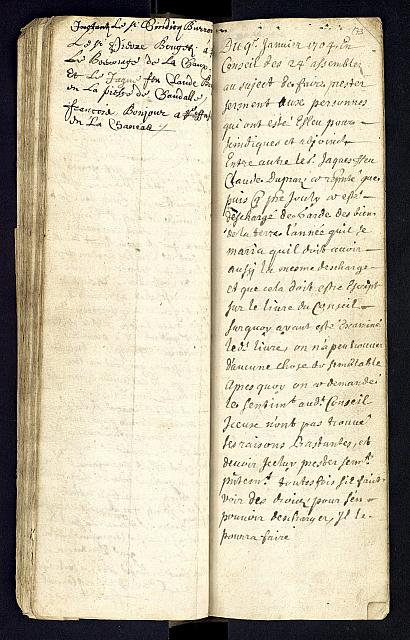 Instant le Sr Sindicq Burron
Le Sr Pierre Bouget
Le Boccage de La Chaux
Et Le Jaque feu Claude
en La pieste de Chaudalle
francois Bonjour
en La Chaneau
173
Du 9e Janvier 1704 un
Conseil des 24 assemblez
au sujet de faire prester
serment aux personnes
qui ont esté Esleu pour
sindiques et adjoinct
Entre autre led. Jaques ffeu
Claude Dupraz a representé que
puis q
deschargé de Garde des bien
de la terre l'annee quil se
maria quil doibt avoir
aussy la mesme descharge
et que cela doit estre Escript
sur le livre du Conseil
surquoy ayant esté Examiné
led. livre, on n'a peu trouver
d'aucune chose de semblable
apres quoy on a demandé
les sentimt aud. Conseil
Iceux n'ont pas trouvé
ses raisons bastantes, et
devoir Iceluy prester sermt
toutes fois s'il faict
voir des droicts pour s'en
pouvoir descharger, Il le
pourra faire